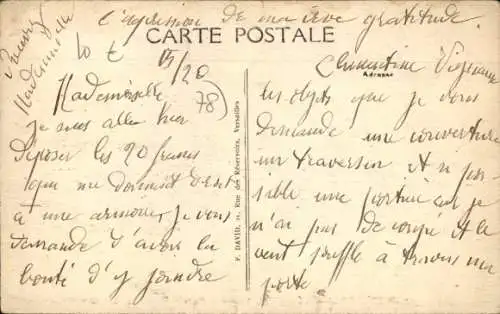 l'expression de ma vive gratitude.
CARTE POSTALE
Clementine
Adresse
Mademoiselle
10 t
15/20
78
Mademoiselle
je suis allée hier
déposer les 20 francs
que me donnent droit
à une armoire, je vous
demande d'avoir la
bonté d'y joindre
F. DAVID, Rue des Réservoirs, Versailles
les objets que je vous
demande une couverture
un traversin et si pos-
sible une portière car je
n'ai pas de et le
vent souffle à travers ma
porte.